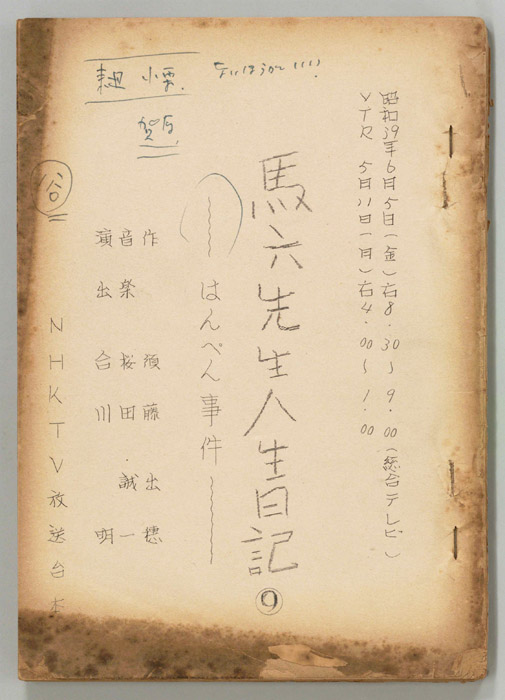 昭和39年6月5日(金)右8.30〜9.00(総合テレビ)
VTR 5月11日(月)右4.00〜1.00
馬六先生人生日記 ⑨
〜はんぺん事件〜
作 須藤出穂
音楽 桜田誠一
演出 合川明
NHKTV放送台本
谷
小栗